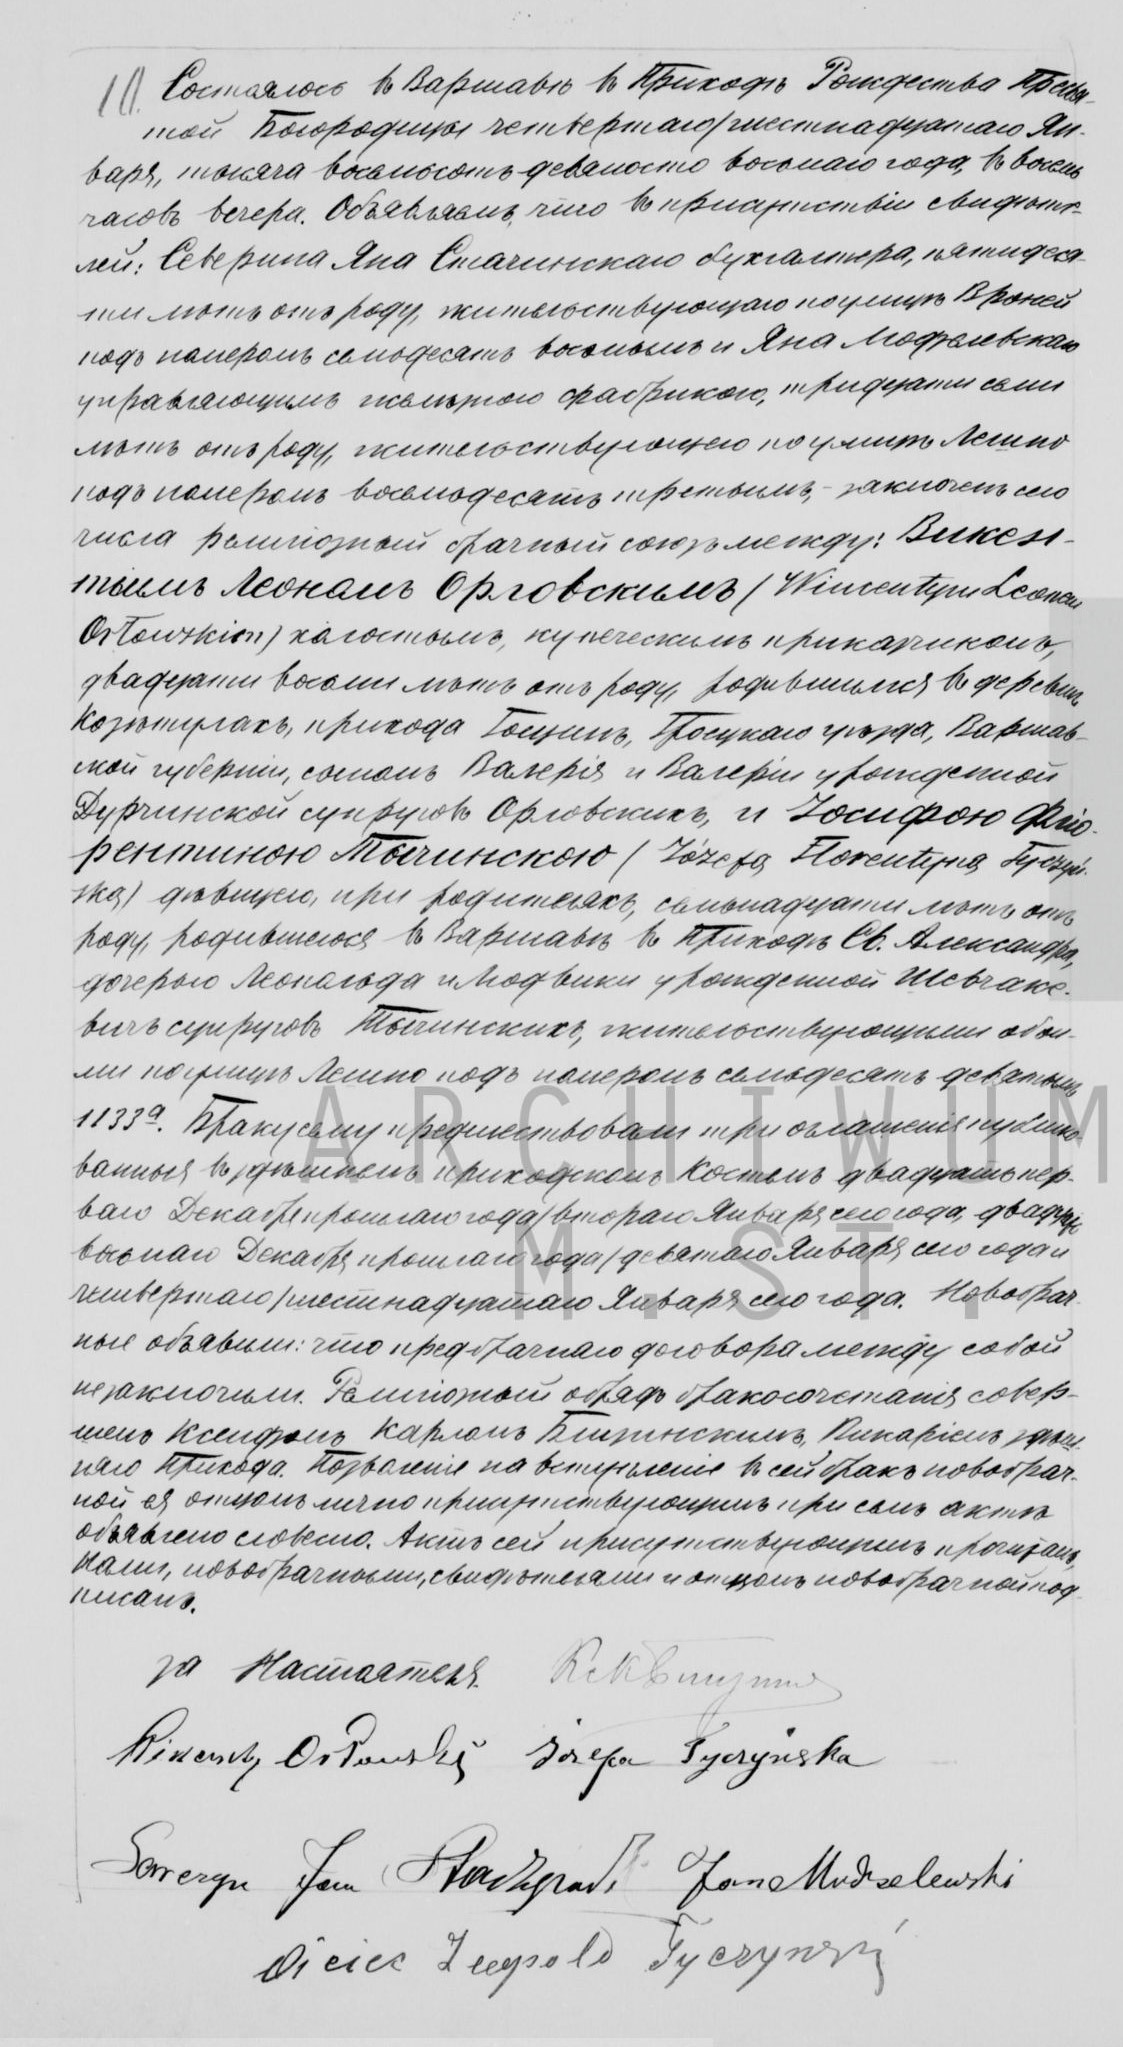 10. Состоялось въ Варшавѣ въ Приходѣ Рождества Пресвя-
той Богородицы четвертаго/шестнадцатаго Ян-
варя, тысяча восемьсотъ девяносто восьмаго года, въ восемь
часовъ вечера. Объявляемъ, что въ присутствіи свидѣте-
лей: Северина Яна Стачинскаго бухгалтера, пятидеся-
ти лѣтъ отъ роду, жительствующаго по улицѣ Вроней
подъ номеромъ семьдесятъ восьмымъ и Яна Модзелевскаго
управляющимъ желѣзною фабрикою, тридцати семи
лѣтъ отъ роду, жительствующаго по улицѣ Лешно
подъ номеромъ восемьдесятъ третьимъ, - заключенъ сего
числа религіозный брачный союзъ между: Викен-
тіемъ Леономъ Орловскимъ (Wincentym Leonem
Orłowskim) холостымъ, купеческимъ прикащикомъ,
двадцати восьми лѣтъ отъ роду, родившимся въ деревнѣ
Козѣтулахъ, прихода Гощинъ, Гроецкаго уѣзда, Варшав-
ской губерніи, сыномъ Валерія и Валеріи урожденной
Дурчинской супруговъ Орловскихъ, и Іосифою Фло-
рентиною Тычинскою (Józefą Florentyną Tyczyń-
ską) дѣвицею, при родителяхъ, семнадцати лѣтъ отъ
роду, родившеюся въ Варшавѣ въ Приходѣ Св. Александра,
дочерью Леопольда и Людвики урожденной Шевчаке-
вичъ супруговъ Тычинскихъ, жительствующими обои-
ми по улицѣ Лешно подъ номеромъ семьдесятъ девятымъ
1133а. Браку сему предшествовали три оглашенія публико-
ванныя въ здѣшнемъ приходскомъ Костелѣ двадцать пер-
ваго Декабря прошлаго года/втораго Января сего года, двадцать
восьмаго Декабря прошлаго года/девятаго Января сего года и
четвертаго/шестнадцатаго Января сего года. Новобрач-
ные объявили: что предбрачнаго договора между собой
незаключили. Религіозный обрядъ бракосочетанія совер-
шенъ Ксендзомъ Карломъ Викаріемъ здѣш-
няго Прихода. Позволеніе на вступленіе въ сей бракъ новобрач-
ной ея отцомъ лично присутствующимъ при семъ актѣ
объявлено словесно. Актъ сей присутствующимъ прочитанъ,
Нами, новобрачными, свидѣтелями и отцомъ новобрачной под-
писанъ.
за Настоятеля.
Wincenty Orłowski Józefa Tyczyńska
Seweryn Jan Jan Modzelewski
Ojciec Leopold Tyczyński
ARCHIWUM
M. ST.